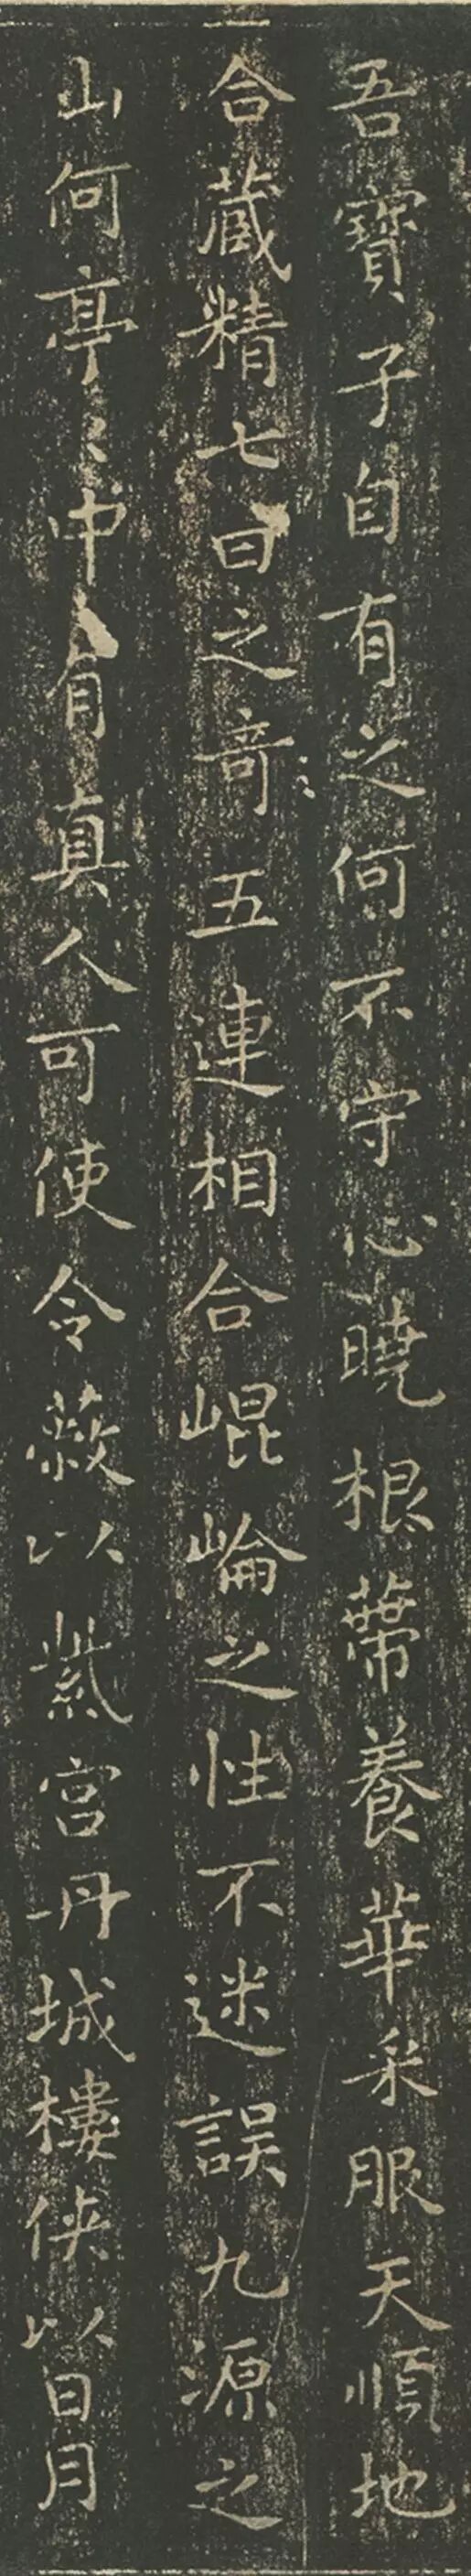 吾寶子自有之何不守心曉根蔕養華采服天順地
合藏精七日之奇五連相合崐崘之性不迷誤九源之
山何亭〻中有真人可使令蔽以紫宫丹城樓俠以日月